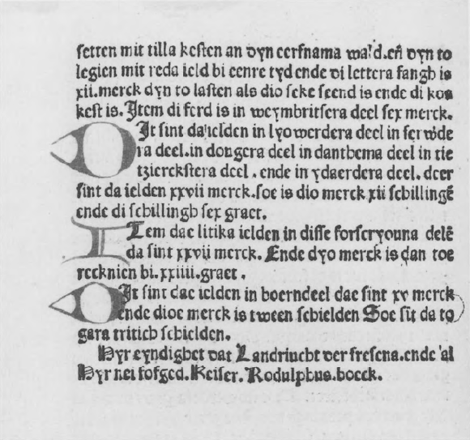 setten mit tilla kesten an dyn eerfnama wa'd.en̄ dyn to
legien mit reda ield bi eenre tyd ende di lettera fangh is
xii.merck dyn to lasten als dio seke seend is ende di kos
kest is. Item di ferd is in weymbritsera deel sex merck.
Dit sint da ielden in lyowerdera deel in fer wde
ra deel.in dongera deel in danthema deel in tie
tzierckstera deel . ende in ydaerdera deel. deer
sint da ielden xxvii merck. soe is dio merck xii schillingē
ende di schillingh sex graet.
Item dae litika ielden in disse forscryouna delē
da sint xxvii merck. Ende dyo merck is dan toe
recknien bi.xxiiii.graet .
Dit sint dae ielden in boerndeel dae sint xv merck
ende dioe merck is tween schielden Soe sit da to
gara tritich schielden.
Hyr eyndighet dat Landriucht der fresena.ende al
Hyr nei folged. Keiser. Rodulphus. boeck.